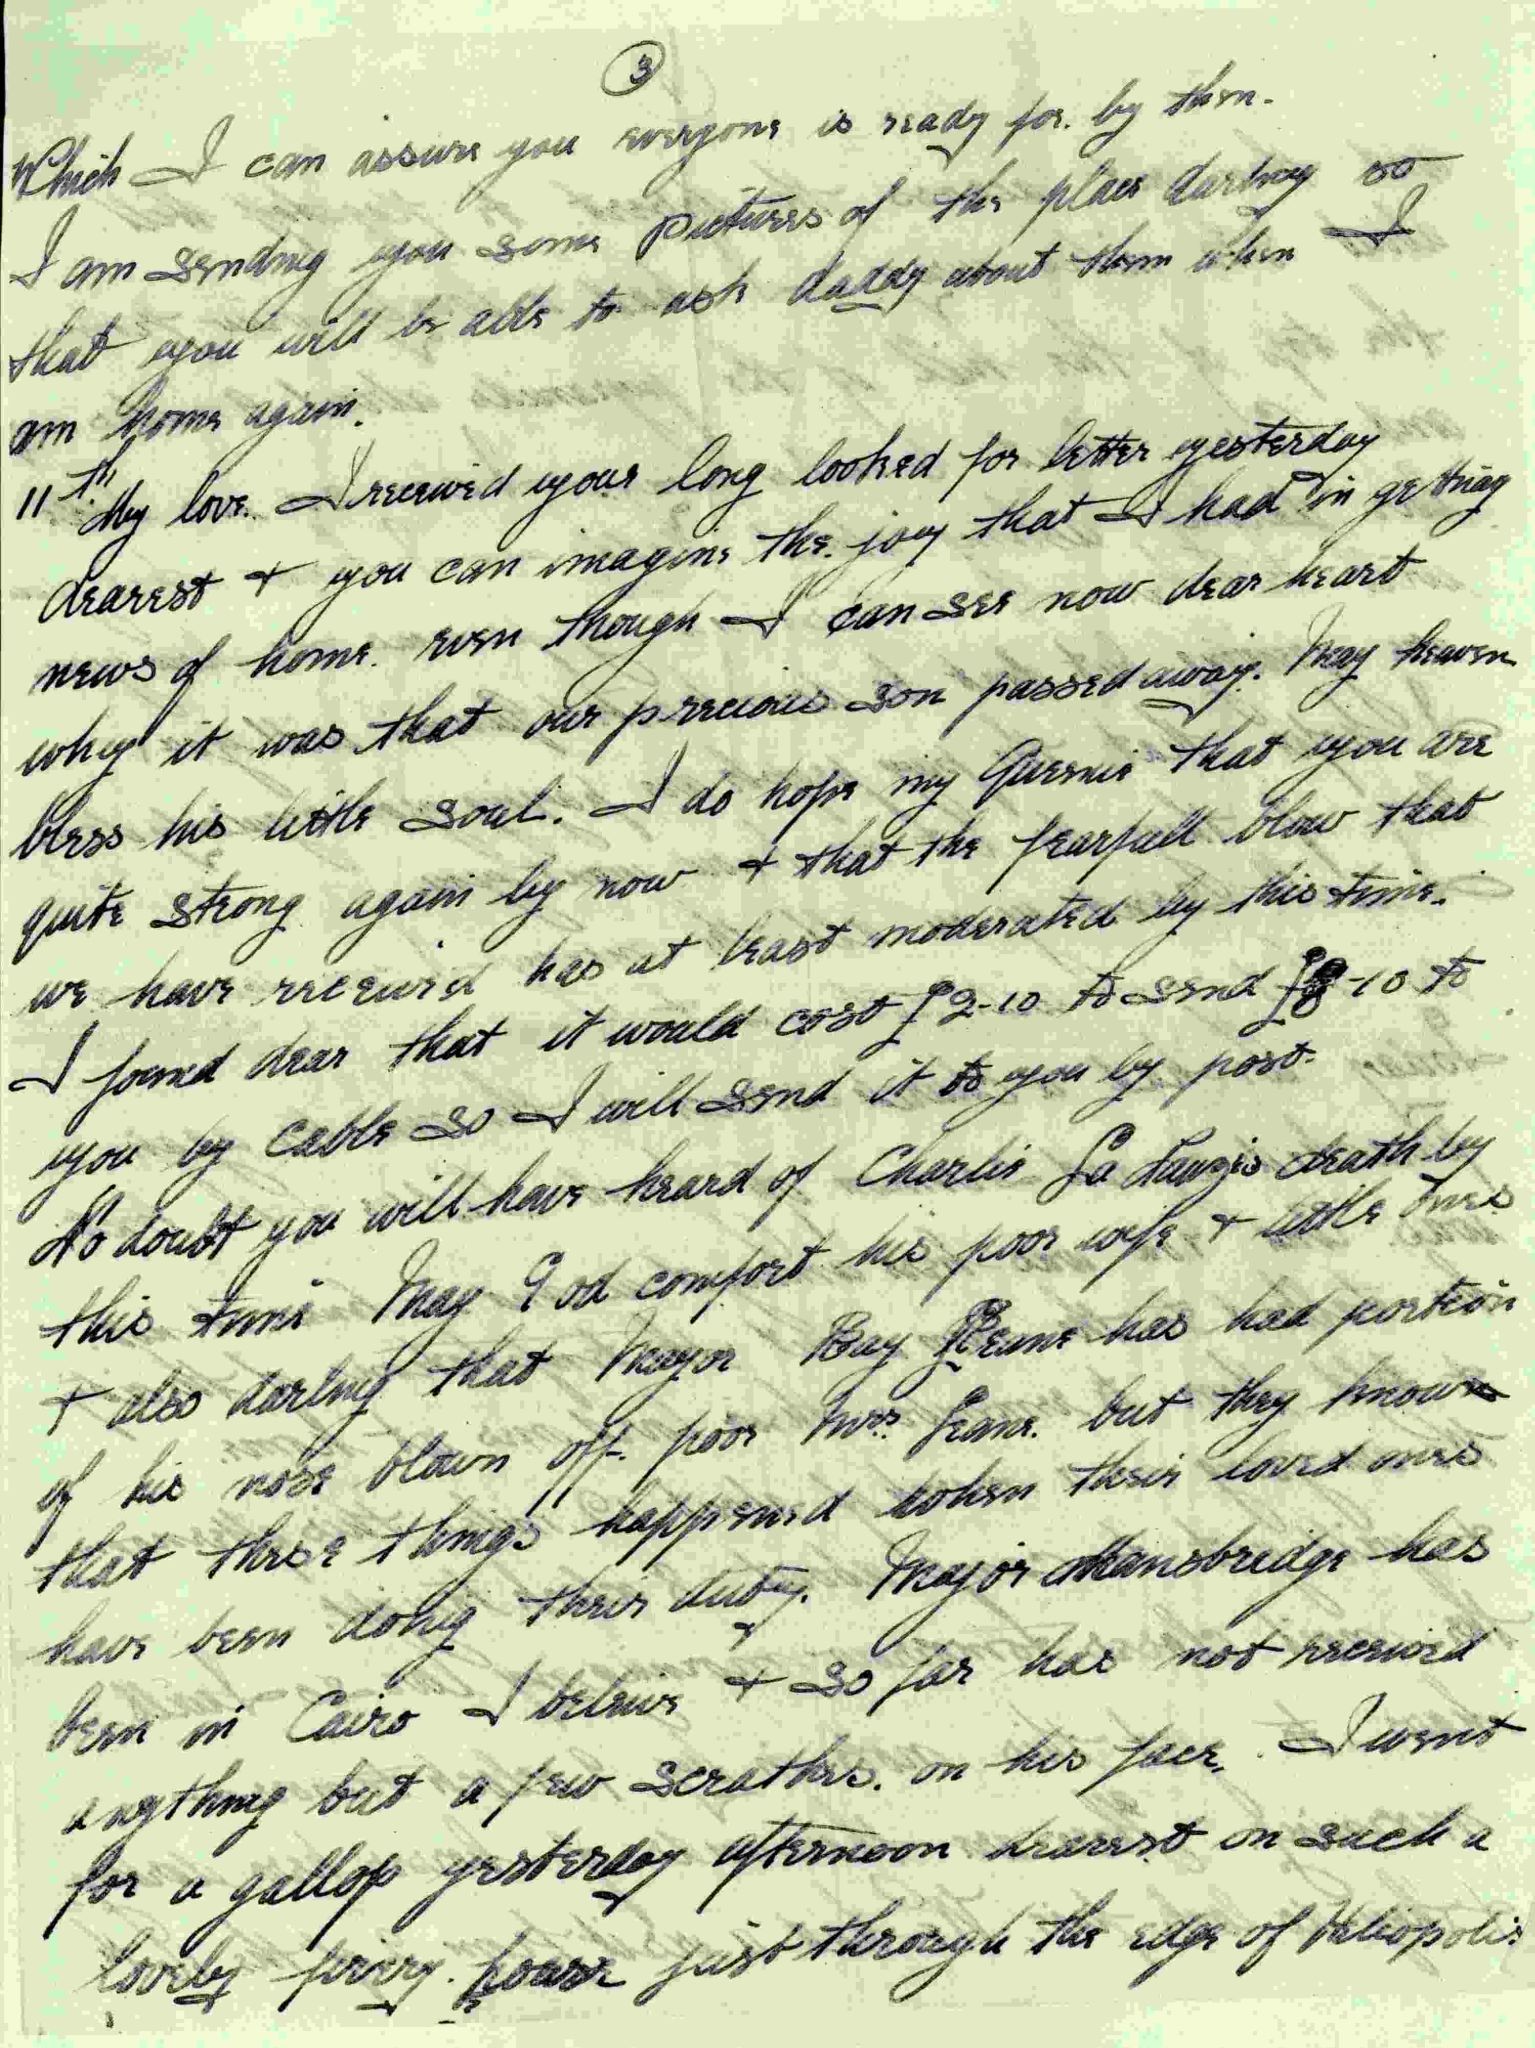 3
Which I can assure you everyone is ready for. by then.
I am sending you some pictures of the place darling so
that you will be able to ask daddy about them when I
am home again.
11th. My love. I received your long looked for letter yesterday
dearest & you can imagine the joy that I had in getting
news of home. even though I can see now dear heart
why it was that our precious son passed away. May heaven
bless his little soul. I do hope my Queenie that you are
quite strong again by now & that the fearfull blow that
we have received has at least moderated by this time.
I found dear that it would cost £2-10 to send £ -10 to
you by cable so I will send it to you by post.
No doubt you will have heard of Charlie La death by
this time May God comfort his poor wife & little ones
& also darling that Mayor Ray has had portion
of his nose blown off. poor Mrs. but they know
that these things happened when their loved ones
have been doing their duty. Major Mansbridge has
been in Cairo I beleive & so far has not received
anything but a few scrathes. on his face. I went
for a gallop yesterday afternoon dearest on such a
lovely firery. hoarse just through the edge of Heliopolis